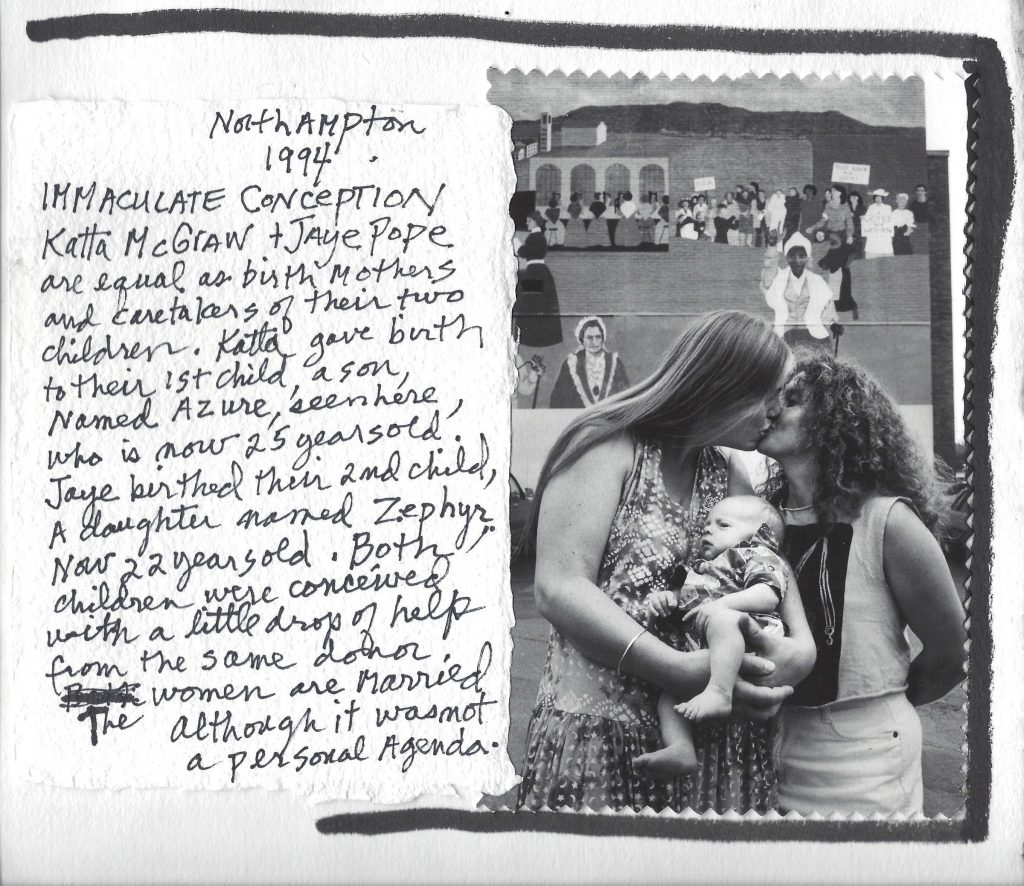 Northampton
1994.
IMMACULATE CONCEPTION
Katta McGraw + Jaye Pope
are equal as birth Mothers
and caretakers of their two
children. Katta gave birth
to their 1st child, a son,
Named Azure, seen here,
who is now 25 years old.
Jaye birthed their 2nd child,
A daughter named Zephyr,
Now 22 years old. Both
children were conceived
with a little drop of help
from the same donor.
The women are married
although it was not
a personal Agenda.